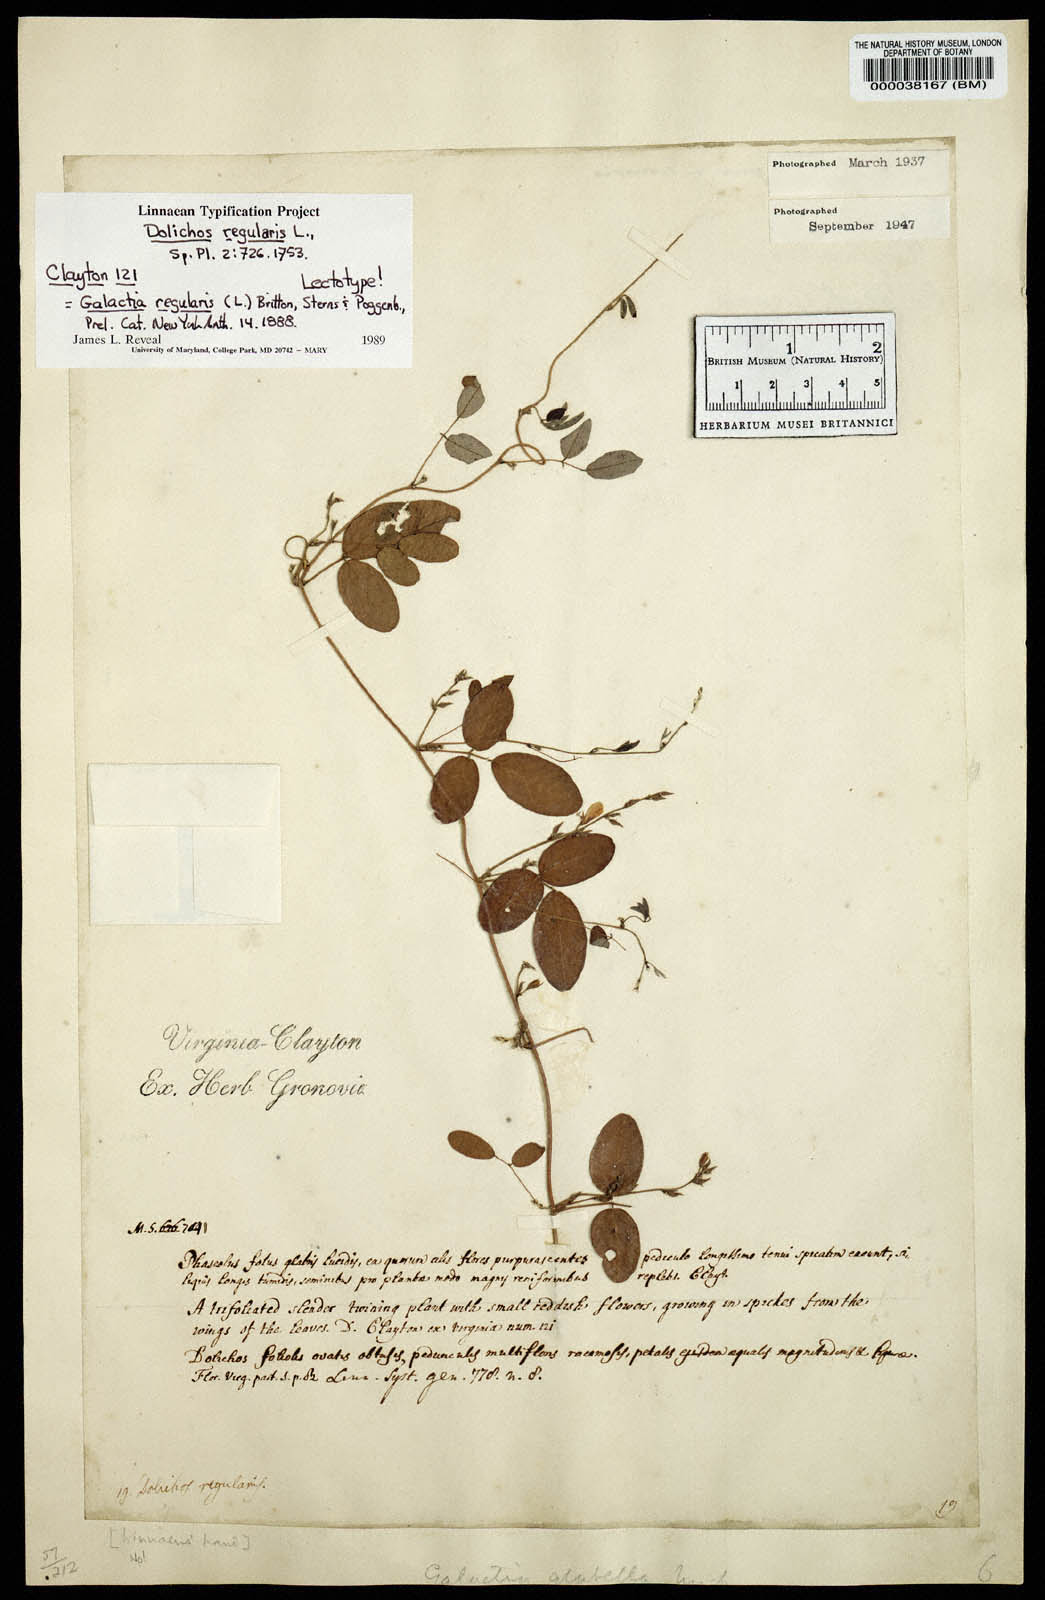 THE NATURAL HISTORY MUSEUM, LONDON
DEPARTMENT OF BOTANY
000038167 (BM)
Photographed March 1937
Photographed
September 1947
Linnaean Typification Project
Dolichos regularis L.,
Sp. Pl. 2:726. 1753.
Clayton 121 Lectotype!
= Galactia regularis (L.) Britton, Sterns & Poggenb.,
Prel. Cat. New York Anth. 14. 1888.
James L. Reveal 1989
University of Maryland, College Park, MD 20742 – MARY
1 2
BRITISH MUSEUM (NATURAL HISTORY)
1 2 3 4 5
HERBARIUM MUSEI BRITANNICI
Virginia-Clayton
Ex. Herb Gronovii
M. S.
Phaseolus foliis glabris lucidis, ex quorum alis flores purpurascentes pediculo longissimo tenui spicatim exeunt, si
liquis longis tumidis, seminibus pro plantæ modo magnis reniformibus repletis. Clayt.
A trifoliated slender twining plant with small reddish flowers, growing in spickes from the
wings of the leaves. D. Clayton ex Virginia num. 121
Dolichos foliolis ovatis obtusis, pedunculis multifloris racemosis, petalis ejusdem æqualis magnitudinis & figuræ.
Flor. Virg. part. 2. p. 82 Linn. Syst. gen. 778. n. 8.
19. Dolichos regularis.
19
[Linnaeus' hand]
not
51/.212
Galactia glabella
6